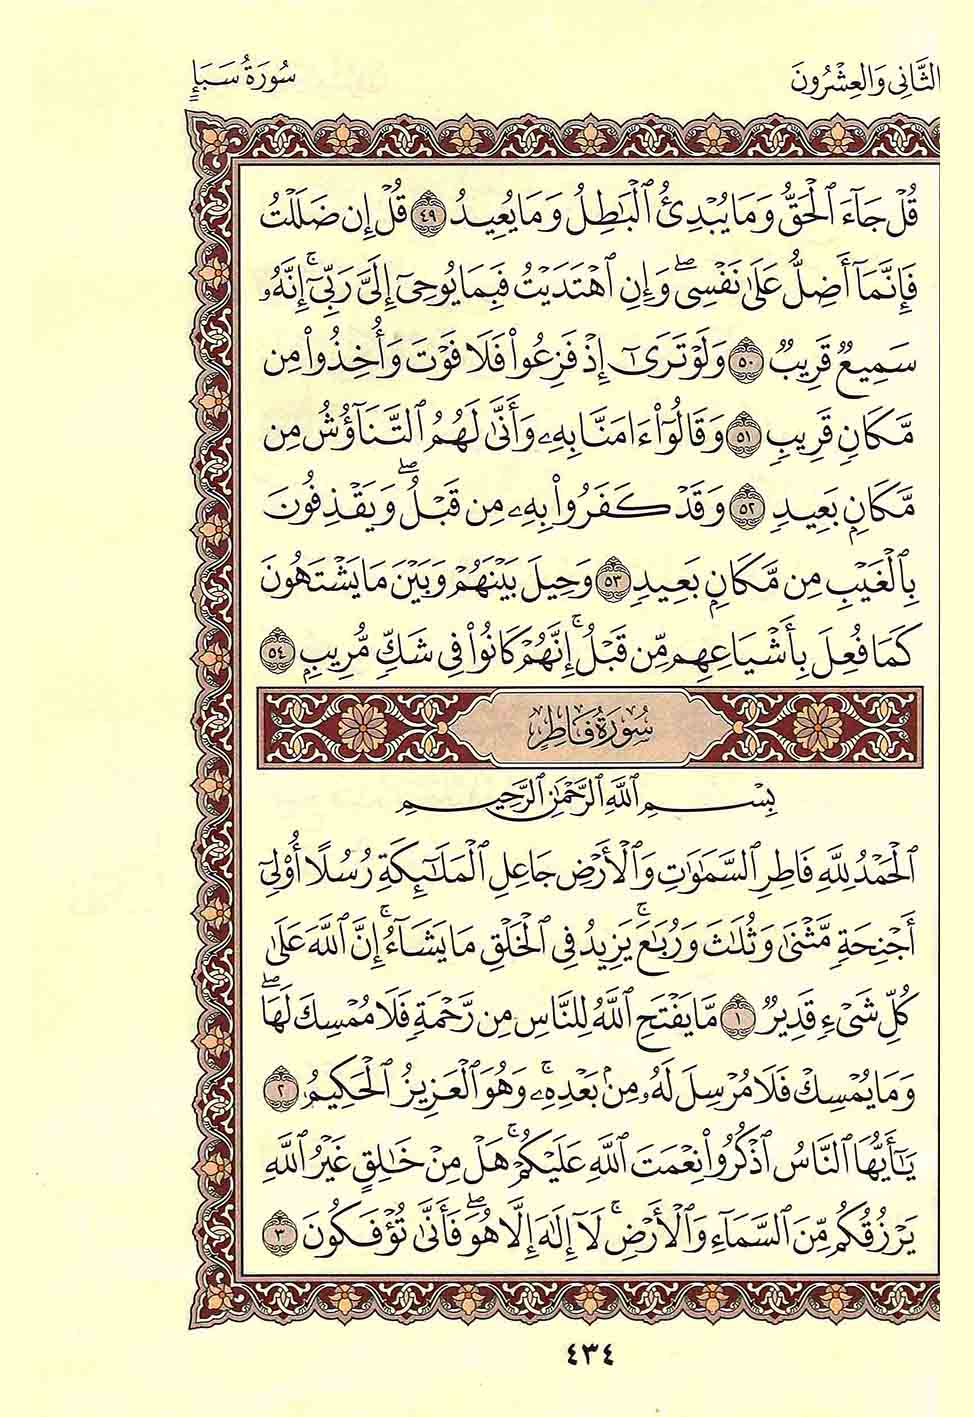 الثَّانِي وَالعِشْرُونَ
سُورَةُ سَبَإٍ
قُلۡ جَآءَ ٱلۡحَقُّ وَمَا يُبۡدِئُ ٱلۡبَٰطِلُ وَمَا يُعِيدُ ٤٩ قُلۡ إِن ضَلَلۡتُ
فَإِنَّمَآ أَضِلُّ عَلَىٰ نَفۡسِيۖ وَإِنِ ٱهۡتَدَيۡتُ فَبِمَا يُوحِيٓ إِلَيَّ رَبِّيٓۚ إِنَّهُۥ
سَمِيعٞ قَرِيبٞ ٥٠ وَلَوۡ تَرَىٰٓ إِذۡ فَزِعُواْ فَلَا فَوۡتَ وَأُخِذُواْ مِن
مَّكَانٖ قَرِيبٖ ٥١ وَقَالُوٓاْ ءَامَنَّا بِهِۦ وَأَنَّىٰ لَهُمُ ٱلتَّنَاوُشُ مِن
مَّكَانِۭ بَعِيدٖ ٥٢ وَقَدۡ كَفَرُواْ بِهِۦ مِن قَبۡلُۖ وَيَقۡذِفُونَ
بِٱلۡغَيۡبِ مِن مَّكَانِۭ بَعِيدٖ ٥٣ وَحِيلَ بَيۡنَهُمۡ وَبَيۡنَ مَا يَشۡتَهُونَ
كَمَا فُعِلَ بِأَشۡيَاعِهِم مِّن قَبۡلُۚ إِنَّهُمۡ كَانُواْ فِي شَكّٖ مُّرِيبِۭ ٥٤
سُورَةُ فَاطِرٍ
بِسۡمِ ٱللَّهِ ٱلرَّحۡمَٰنِ ٱلرَّحِيمِ
ٱلۡحَمۡدُ لِلَّهِ فَاطِرِ ٱلسَّمَٰوَٰتِ وَٱلۡأَرۡضِ جَاعِلِ ٱلۡمَلَٰٓئِكَةِ رُسُلًا أُوْلِيٓ
أَجۡنِحَةٖ مَّثۡنَىٰ وَثُلَٰثَ وَرُبَٰعَۚ يَزِيدُ فِي ٱلۡخَلۡقِ مَا يَشَآءُۚ إِنَّ ٱللَّهَ عَلَىٰ
كُلِّ شَيۡءٖ قَدِيرٞ ١ مَّا يَفۡتَحِ ٱللَّهُ لِلنَّاسِ مِن رَّحۡمَةٖ فَلَا مُمۡسِكَ لَهَاۖ
وَمَا يُمۡسِكۡ فَلَا مُرۡسِلَ لَهُۥ مِنۢ بَعۡدِهِۦۚ وَهُوَ ٱلۡعَزِيزُ ٱلۡحَكِيمُ ٢
يَٰٓأَيُّهَا ٱلنَّاسُ ٱذۡكُرُواْ نِعۡمَتَ ٱللَّهِ عَلَيۡكُمۡۚ هَلۡ مِنۡ خَٰلِقٍ غَيۡرُ ٱللَّهِ
يَرۡزُقُكُم مِّنَ ٱلسَّمَآءِ وَٱلۡأَرۡضِۚ لَآ إِلَٰهَ إِلَّا هُوَۖ فَأَنَّىٰ تُؤۡفَكُونَ ٣
٤٣٤